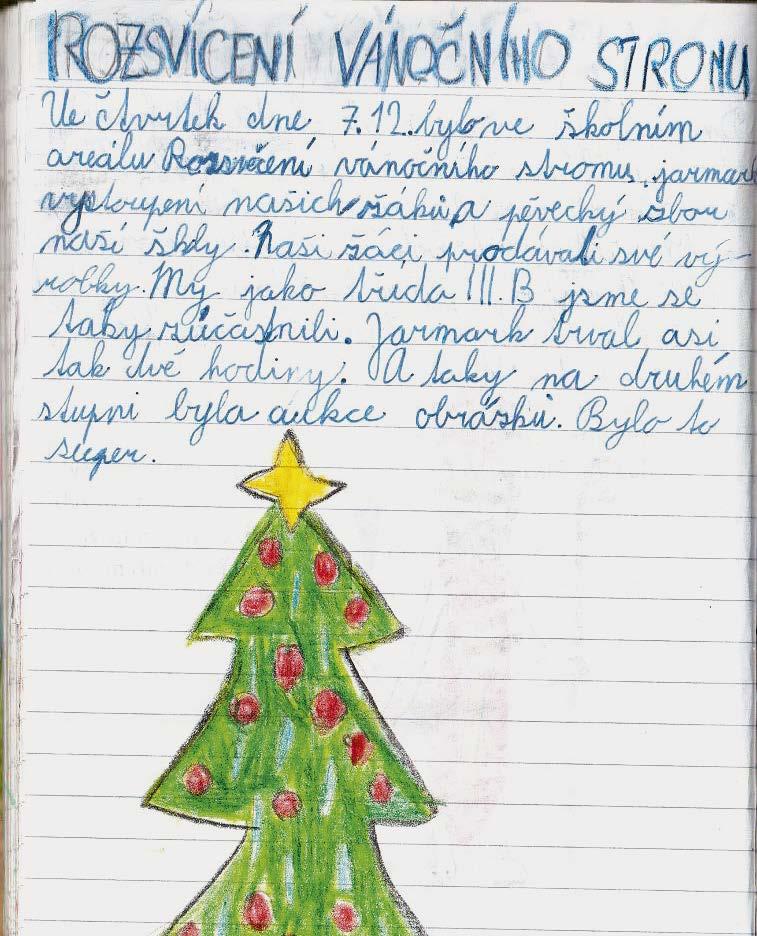 ROZSVÍCENÍ VÁNOČNÍHO STROMU
Ve čtvrtek dne 7.12. bylo ve školním
areálu Rozsvícení vánočního stromu, jarmark
vystoupení našich žáků a pěvecký sbor
naší školy. Naši žáci prodávali své vý-
robky. My jako třída III. B jsme se
taky zúčastnili. Jarmark trval asi
tak dvě hodiny. A taky na druhém
stupni byla aukce obrázků. Bylo to
super.